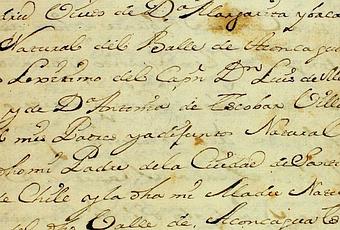 Oclics de D.ª Margarita yorca
Natural del Balle de Aconcagua
Lexitimo del Capn Dn Luis de
y de D.ª Antonia de Escobar Ville
mis Padres ya difuntos Natural
dho mi Padre de la Ciudad de Santi
de Chile y la dha mi Madre Natu
dho Balle de Aconcagua